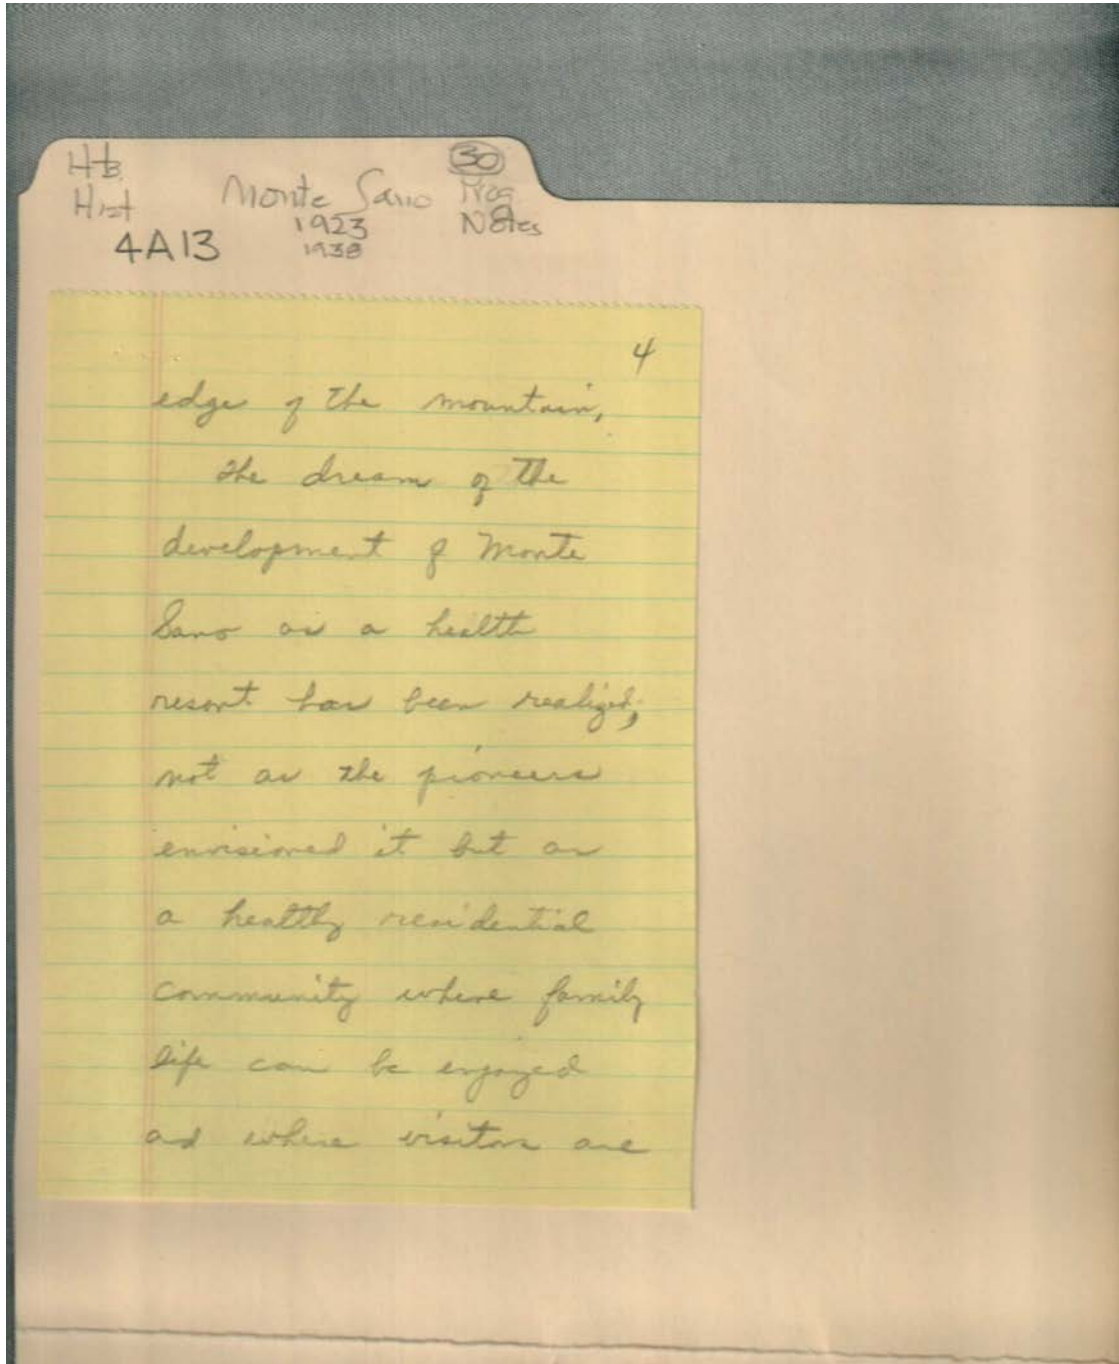 Htb.
Hist
4A13
Monte Sano
1923
1938
30
Prog
Notes
4
edge of the mountain,
The dream of the
development of Monte
Sano as a health
resort has been realized;
not as the pioneers
envisioned it but as
a healthy residential
community where family
life can be enjoyed
ad where visitors are